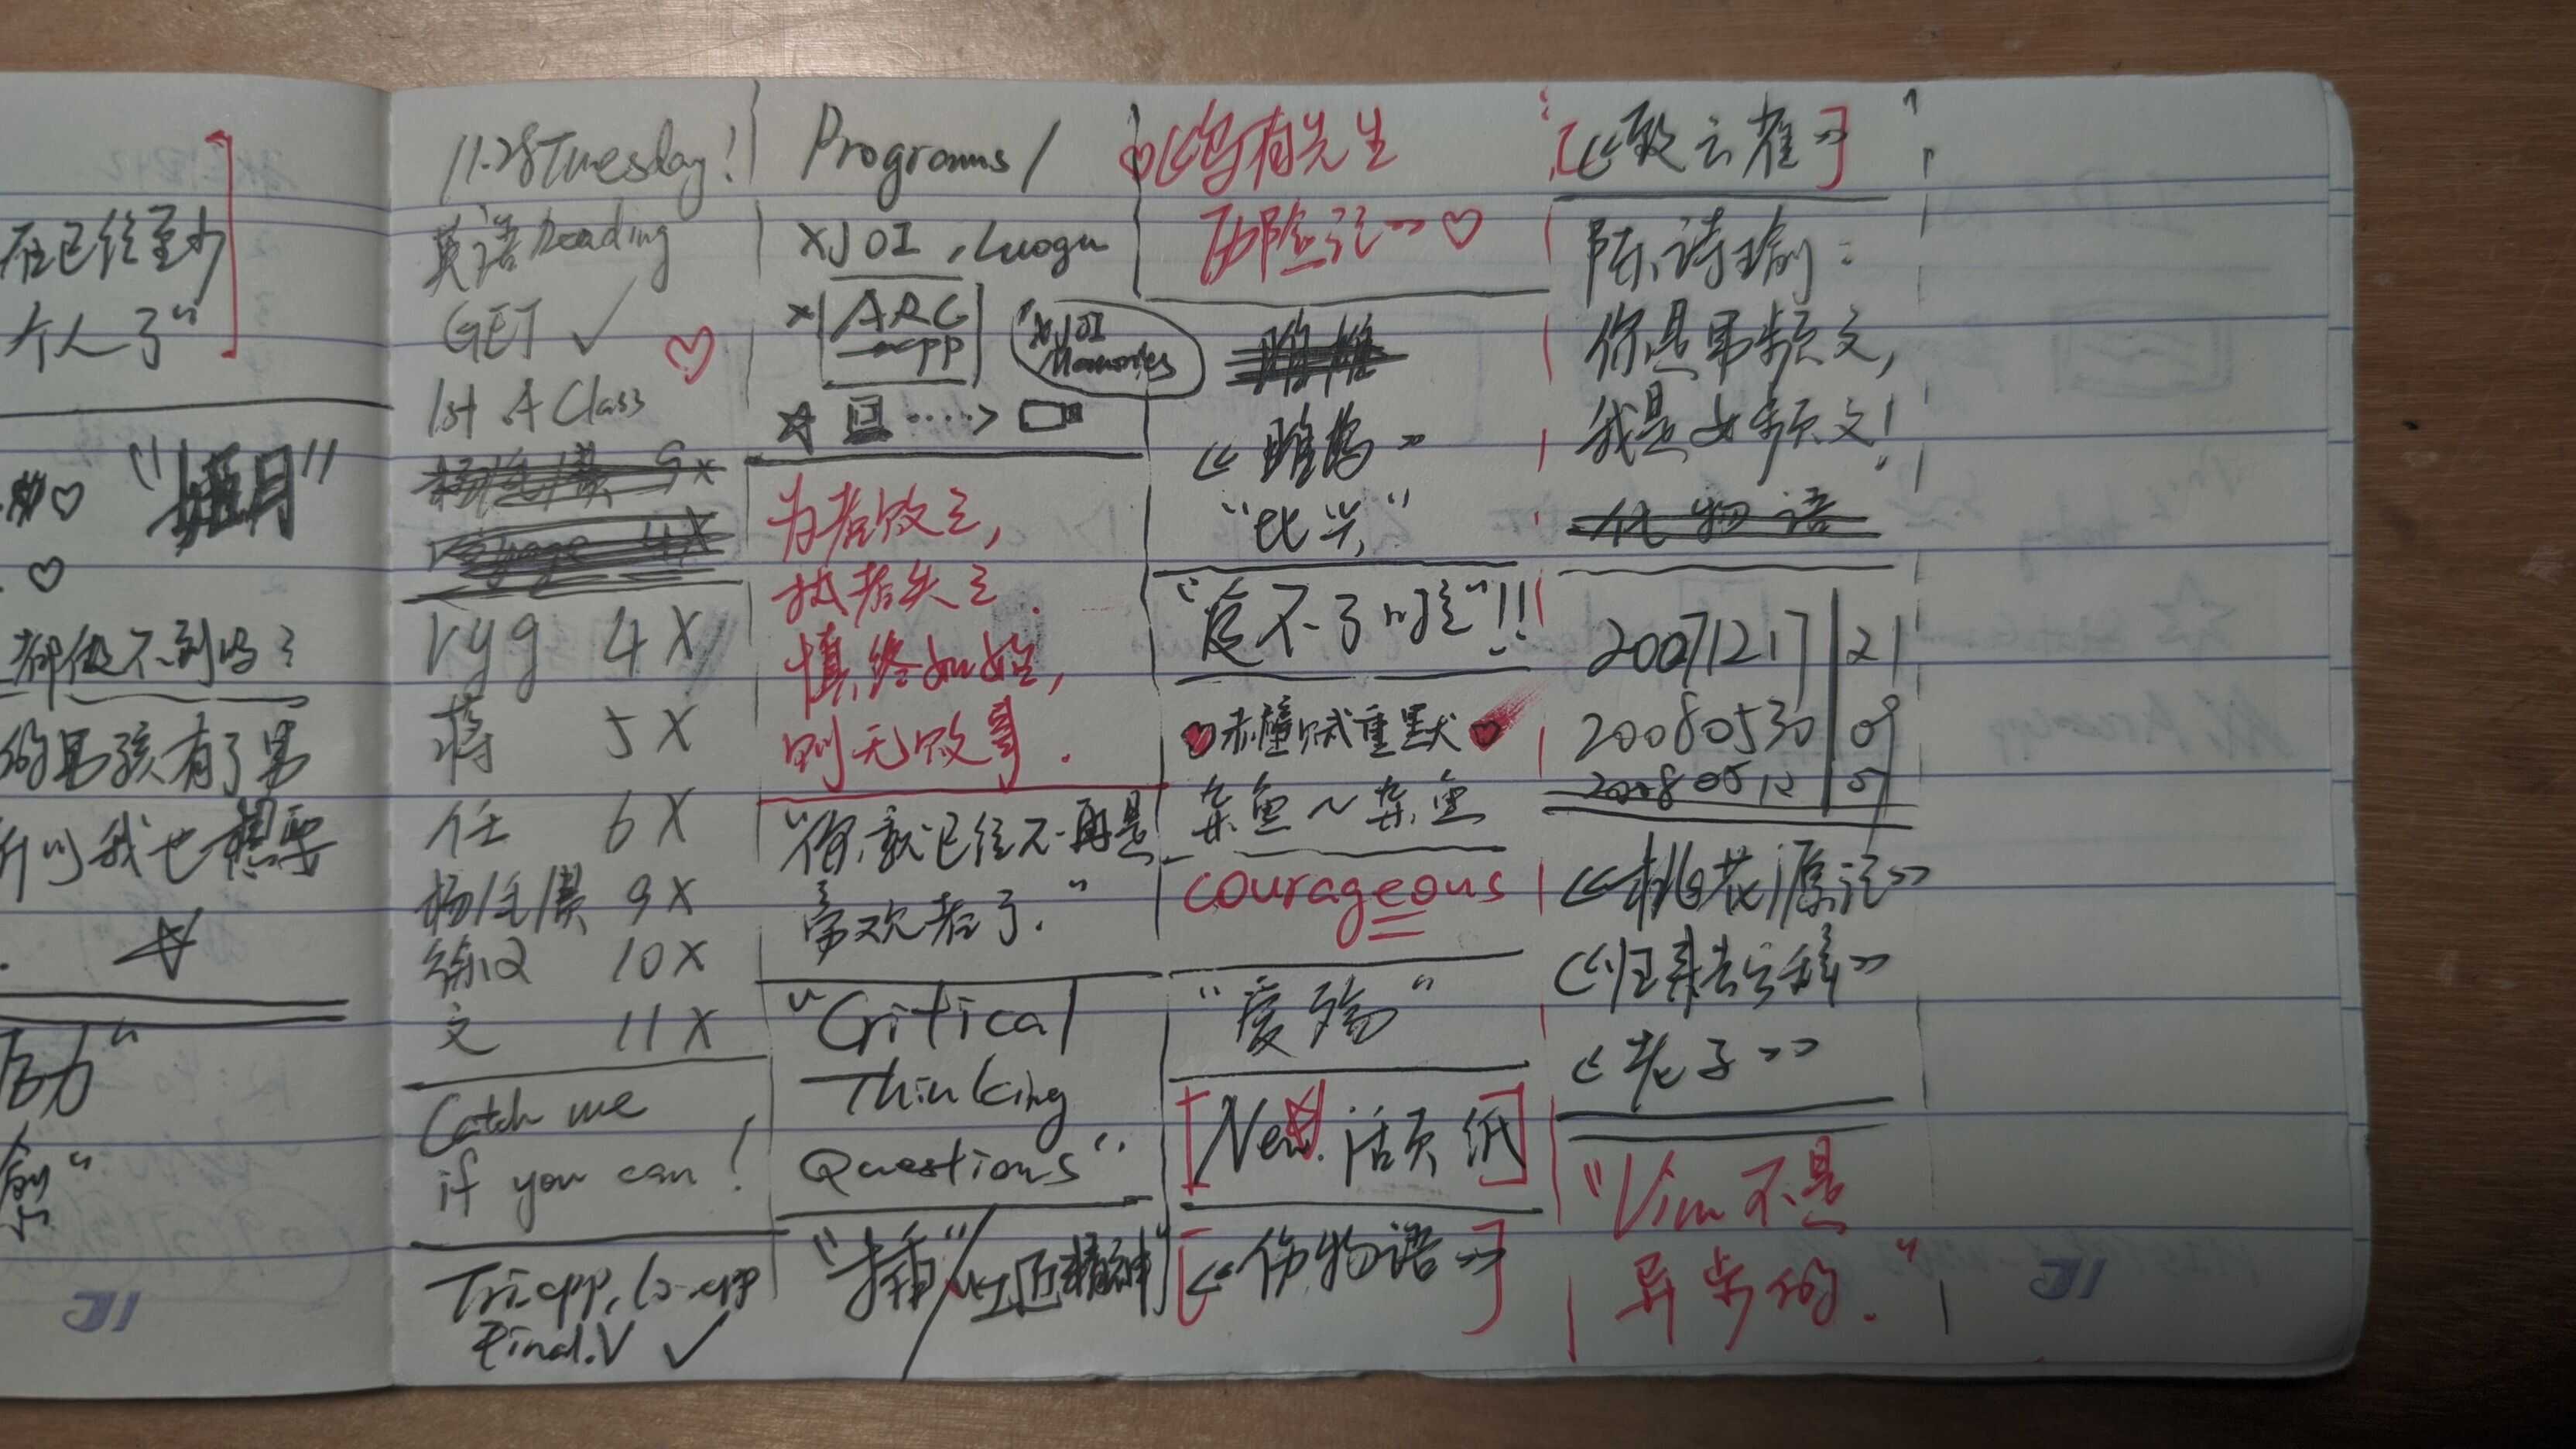 在已经至少
个人了"
都做不到吗?
的男孩有了男
所以我也想要
11.28 Tuesday!
英语 Reading
GET ✓
1st A Class
ryg 4X
蒋 5X
任 6X
杨/毛/龚 9X
徐Q 10X
文 11X
Catch me
if you can!
Tri.cpp, lo.cpp
Final.V ✓
Programs/
XJOI, Luogu
ARC
.cpp
XJOI
Memories
为者败之,
执者失之.
慎终如始,
则无败事.
"你就已经不再是
喜欢者了."
"Critical
Thinking
Questions"
"插"/"红匠精神"
《乌有先生
历险记》
《雎鸠》
"比兴"
"忘不了吃"!!
赤壁赋重默
杂鱼~杂鱼
courageous
"爱殇"
[New 活页纸]
[《伤物语》]
[《致云雀》]
陈诗瑜:
你是男频文,
我是女频文!
化物语
20071217 21
20080530 09
20080512 5
《桃花源记》
《归去来兮辞》
《老子》
"Vim 不是
异步的."